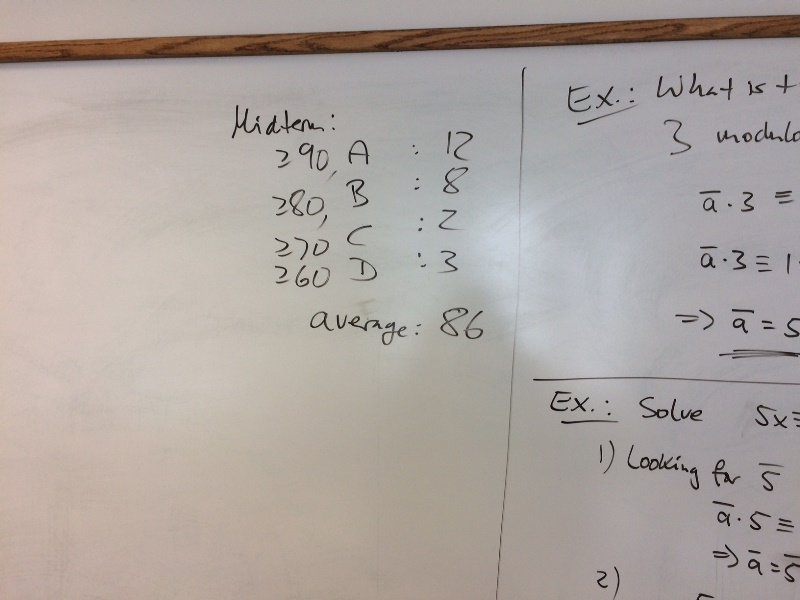 Midterm:
≥90, A : 12
≥80, B : 8
≥70 C : 2
≥60 D : 3
average: 86
Ex.: What is
3 modulo
ā·3 ≡
ā·3 ≡ 1
=> ā = 5
Ex.: Solve 5x≡
1) Looking for 5̄
ā·5 ≡
=> ā=5̄
2)